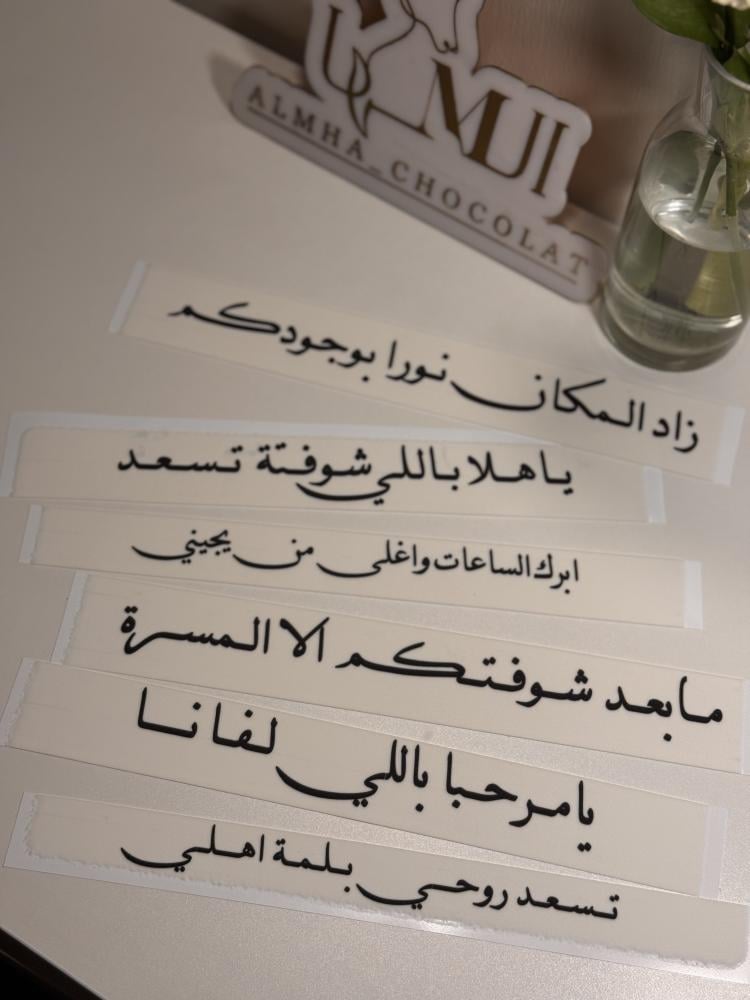 ALMHA_CHOCOLAT
زاد المكان نورا بوجودكم
ياهلا باللي شوفتة تسعد
ابرك الساعات واغلى من يجيني
مابعد شوفتكم الا المسرة
يامرحبا باللي لفانا
تسعد روحي بلمة اهلي